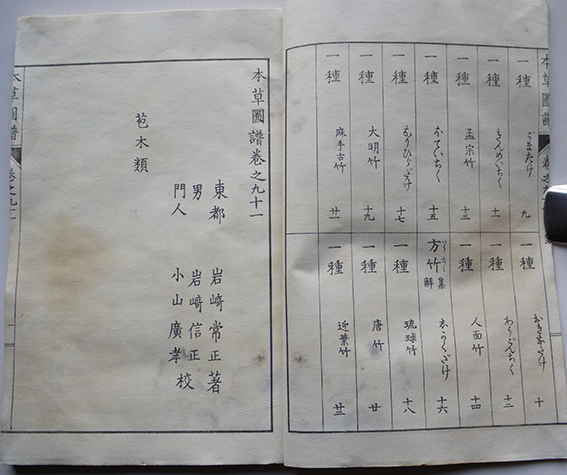 本草圖譜
一種 うまたけ 九
一種 十
一種 きんめいちく 十一
一種 わうごんちく 十二
一種 孟宗竹 十三
一種 人面竹 十四
一種 ほていちく 十五
方竹 集解 しかくだけ 十六
一種 なりひらだけ 十七
一種 琉球竹 十八
一種 大明竹 十九
一種 唐竹 廿
一種 麻手古竹 廿一
一種 近葉竹 廿二
本草圖譜卷之九十一
東都 岩﨑常正著
男 岩﨑信正
門人 小山廣孝校
苞木類
本草圖譜 卷之九十一